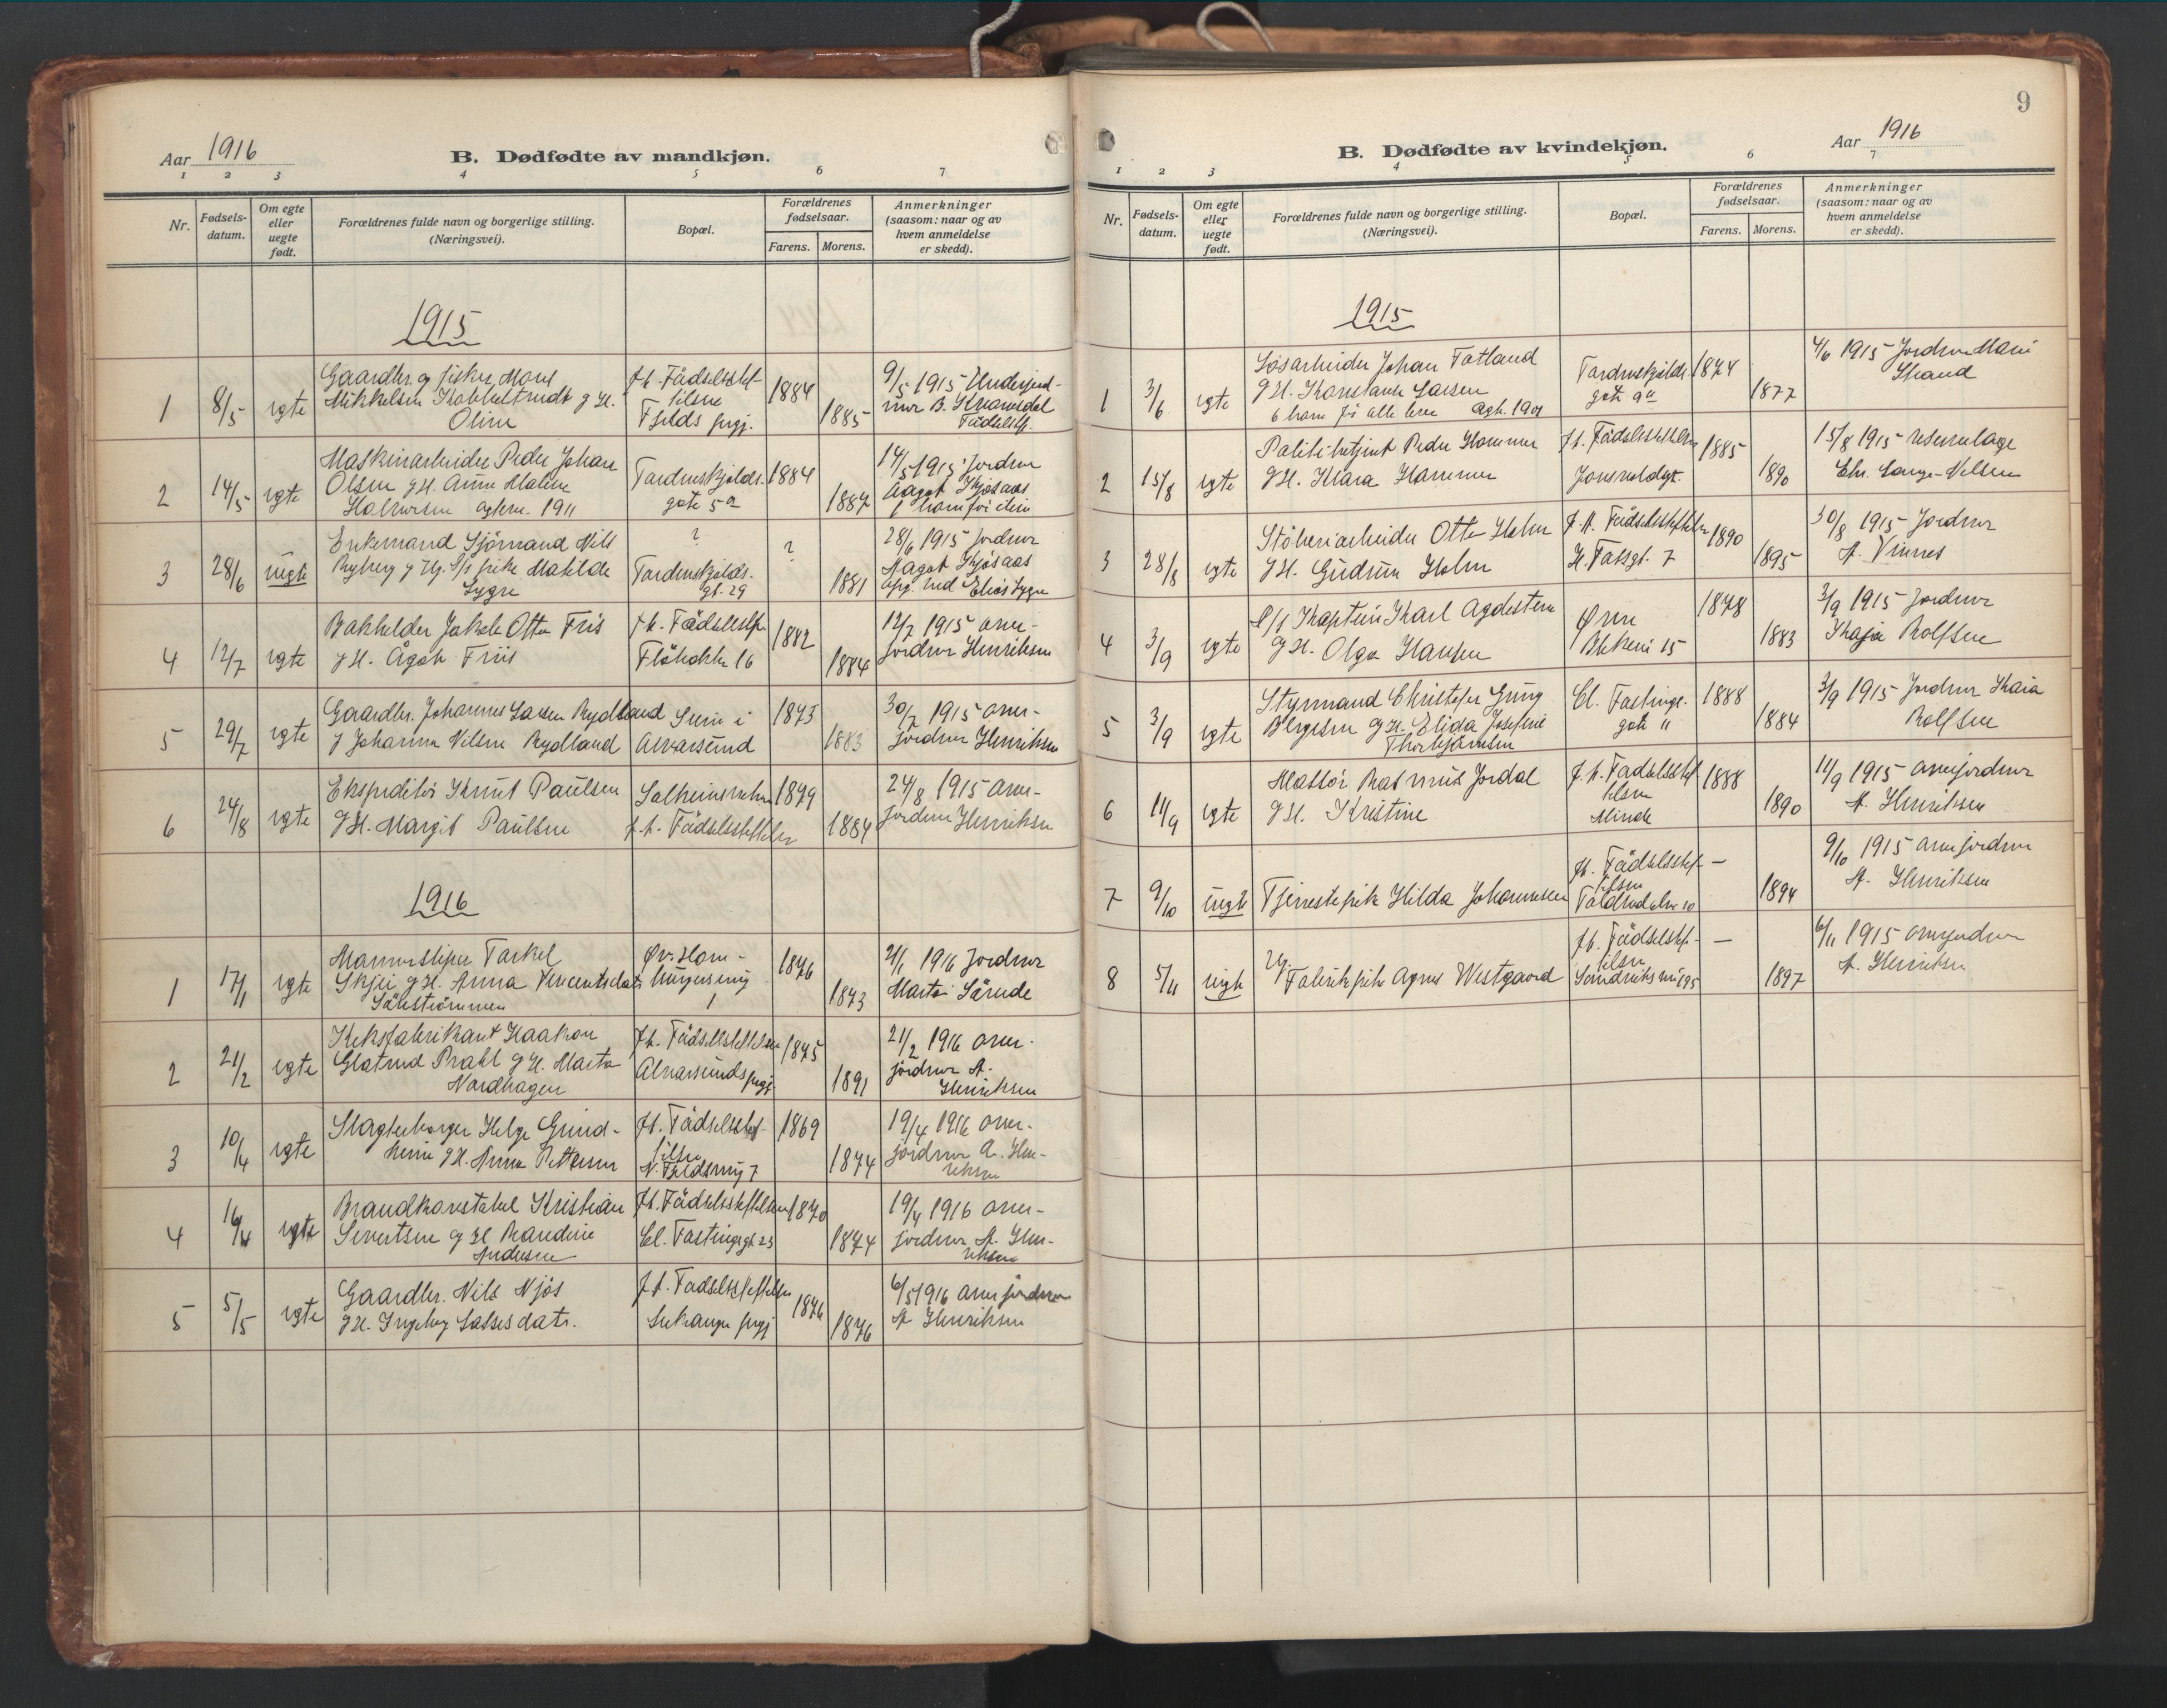 Aar 1916
B. Dødfødte av mandkjøn.
1 2 3 4 5 6 7
Nr.
Fødsels-
datum.
Om egte
eller
uegte
født.
Forældrenes fulde navn og borgerlige stilling.
(Næringsvei).
Bopæl.
Forældrenes
fødselsaar.
Farens. Morens.
Anmerkninger
(saasom: naar og av
hvem anmeldelse
er skedd).
1915
1 8/5 egte
Gaardbr. og fisker Mons
Mikkelsen g H.
Oline
Kv. Fødselsstif-
telsen
Fjelds prgj.
1884 1885
9/5 1915 Underjord-
mor B. Kvamsdal
Fødselsst.
2 14/5 egte
Maskinarbeider Peder Johan
Olsen g H. Anna Malene
Halvorsen egtev. 1911
Tordenskjolds-
gate 5a
1884 1887
14/5 1915 Jordmor
Aagot Kjosaas
1 barn før ilive
3 28/6 uegte
Enkemand Sjømand Nils
Ryberg g Ug. f/s pike Matilde
Sygre
?
Tordenskjolds-
gt. 29
? 1881
28/6 1915 Jordmor
Aagot Kjosaas
opg. ved Elias Sygre
4 12/7 egte
Bokholder Jakob Otto Friis
g H. Ågot Friis
Kv. Fødselsst.
Fløibakke 16
1882 1884
12/7 1915 over-
jordmor Henriksen
5 29/7 egte
Gaardbr. Johannes Larsen Rydland
g Johanna Nilsen Rydland
Seim i
Alvarsund
1873 1883
30/7 1915 over-
jordmor Henriksen
6 24/8 egte
Ekspeditør Knut Paulsen
g H. Margit Paulsen
Solheimsviken
k.k. Fødselsstiftelsen
1879 1884
24/8 1915 over-
jordmor Henriksen
1916
1 17/1 egte
Marmorsliper Torkel
Skjei g H. Anna Vincentsdatr
Sælestrømmen
Øvr. Ham-
burgersmug
1
1876 1873
2/1 1916 Jordmor
Marta Sørude
2 21/2 egte
Keksfabrikant Haakon
Glatved Prahl g H. Marta
Nordhagen
Kv. Fødselsstiftelsen
Alvarsunds prgj.
1875 1891
21/2 1916 over-
jordmor A.
Henriksen
3 10/4 egte
Slagterborger Helge Grind-
heim g H. Anna Pettersen
Kv. Fødselsstif-
telsen
N. Fjeldsmug 7
1869 1874
19/4 1916 over-
jordmor A. Hen-
riksen
4 16/4 egte
Brandkonstabel Kristian
Sivertsen og H Randine
Andersen
Kv. Fødselsstiftelsen
Cl. Fastingsgt 23
1870 1874
19/4 1916 over-
jordmor A. Hen-
riksen
5 5/5 egte
Gaardbr. Nils Njøs
g H. Ingeborg Lassesdatr.
Kv. Fødselsstiftelsen
Leikanger prgj
1876 1876
6/5 1916 overjordmor
A Henriksen
9
Aar 1916
B. Dødfødte av kvindekjøn.
1 2 3 4 5 6 7
Nr.
Fødsels-
datum.
Om egte
eller
uegte
født.
Forældrenes fulde navn og borgerlige stilling.
(Næringsvei).
Bopæl.
Forældrenes
fødselsaar.
Farens. Morens.
Anmerkninger
(saasom: naar og av
hvem anmeldelse
er skedd).
1915
1 3/6 egte
Løsarbeider Johan Totland
g H. Konstanse Larsen
6 barn før alle lever egt. 1901
Tordenskjolds
gate 9a
1874 1877
4/6 1915 Jordmor Marie
Strand
2 15/8 egte
Politibetjent Peder Hammer
g H. Klara Hammer
Kv. Fødselsstiftelsen
Jonsvoldgt.
1885 1890
15/8 1915 reservelæge
Chr. Lange-Nilsen
3 28/8 egte
Støberiarbeider Otto Holm
g H. Gudrun Holm
K. K. Fødselsstiftelsen
H. Fossgt. 7
1890 1895
30/8 1915 Jordmor
A. Vinnes
4 3/9 egte
f/s Kaptein Karl Agdesten
g H. Olga Hansen
Øvre
Blekevei 15
1878 1883
3/9 1915 Jordmor
Kaja Rolfsen
5 3/9 egte
Styrmand Christofer Gung
Bergesen g H. Elida Josefine
Thorbjørnsen
Cl. Fastings-
gate 11
1888 1884
3/9 1915 Jordmor Kaia
Rolfsen
6 11/9 egte
Massør Rasmus Jordal
g H. Kristine
K. k. Fødselsstif
telsen
Minde
1888 1890
11/9 1915 overjordmor
A. Henriksen
7 9/10 uegte
Tjenestepike Hilda Johannesen
Kv. Fødselsstif-
telsen
— 1894
9/10 1915 overjordmor
A. Henriksen
8 5/11 uegte
Ug.
Fabrikpike Agnes Westgaard
Kv. Fødselsst.-
telsen
Sandviksvei 95
— 1897
6/11 1915 overjordmor
A. Henriksen